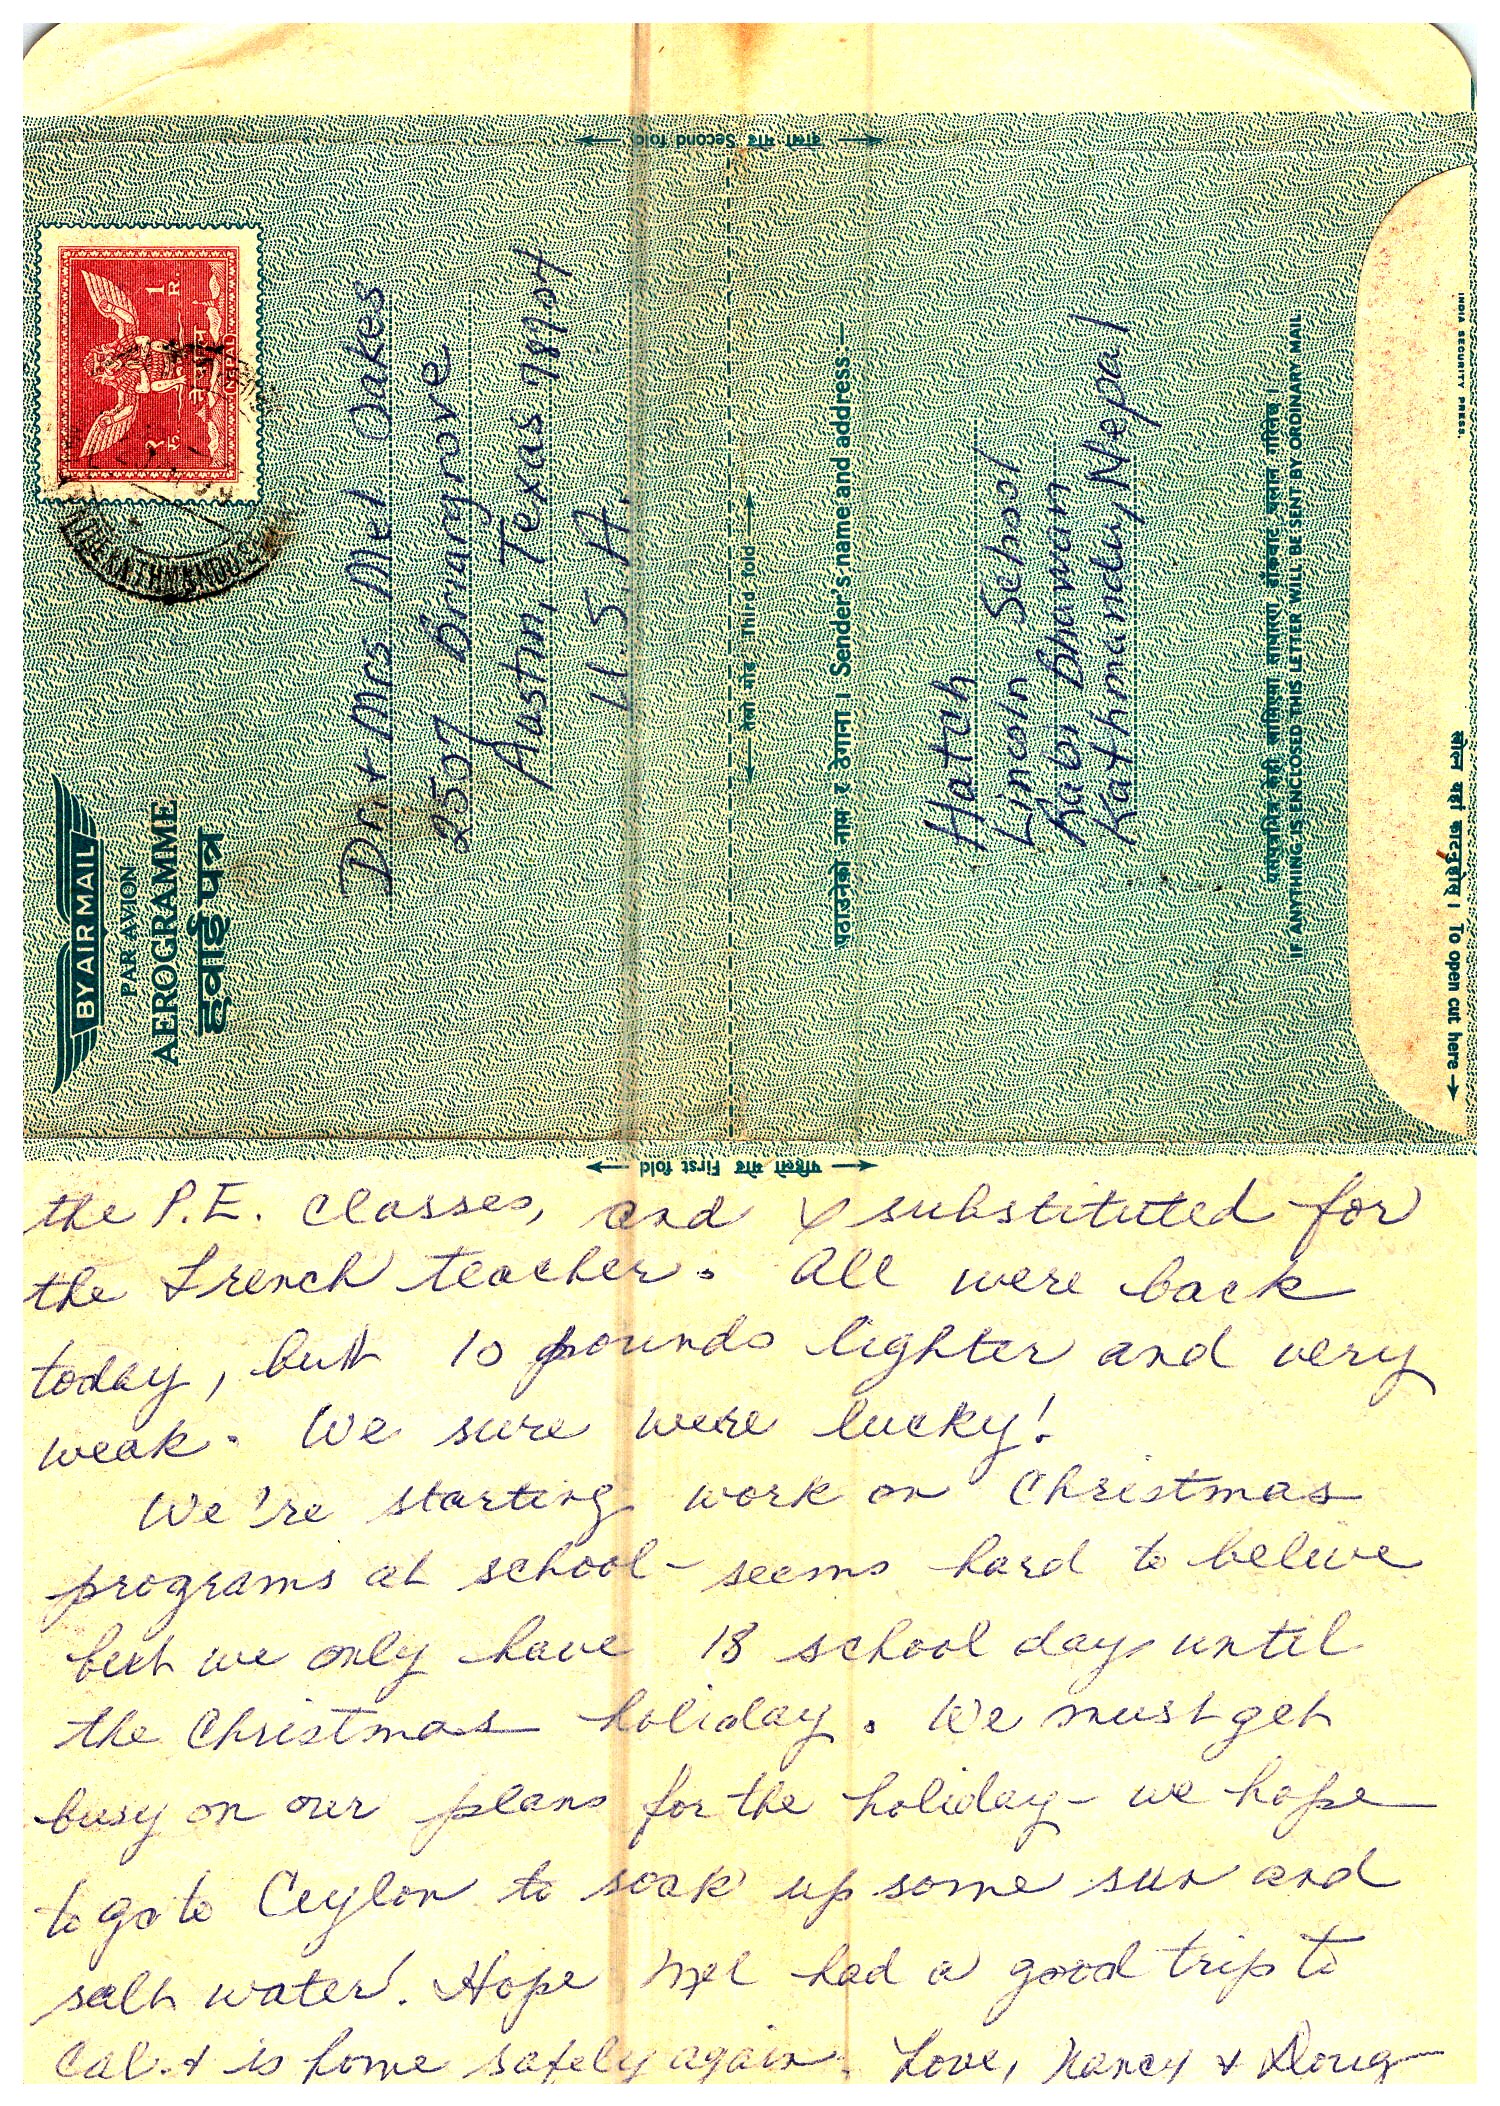 दोस्रो मोड Second fold
1 R.
१ रू.
नेपाल
NEPAL
KATHMANDU
BY AIR MAIL
PAR AVION
AEROGRAMME
हवाई पत्र
Dr. + Mrs Mel Oakes
2507 Briargrove
Austin, Texas 78704
U.S.A.
तेस्रो मोड Third fold
पठाउनेको नाम र ठेगाना । Sender's name and address:—
Hatch
Lincoln School
Rabi Bhawan
Kathmandu, Nepal
यसपत्रभित्र केही राखिएमा साधारण डाँकबाट चलान गरिनेछ ।
IF ANYTHING IS ENCLOSED THIS LETTER WILL BE SENT BY ORDINARY MAIL
INDIA SECURITY PRESS.
खोल्न यहाँ काट्नुहोस् । To open cut here
पहिलो मोड First fold
the P.E. classes, and I substituted for
the French teacher. All were back
today, but 10 pounds lighter and very
weak. We sure were lucky!
We're starting work on Christmas
programs at school - seems hard to belive
but we only have 18 school days until
the Christmas holiday. We must get
busy on our plans for the holiday - we hope
to go to Ceylon to soak up some sun and
salt water! Hope Mel had a good trip to
Cal. + is home safely again. Love, Nancy + Doug